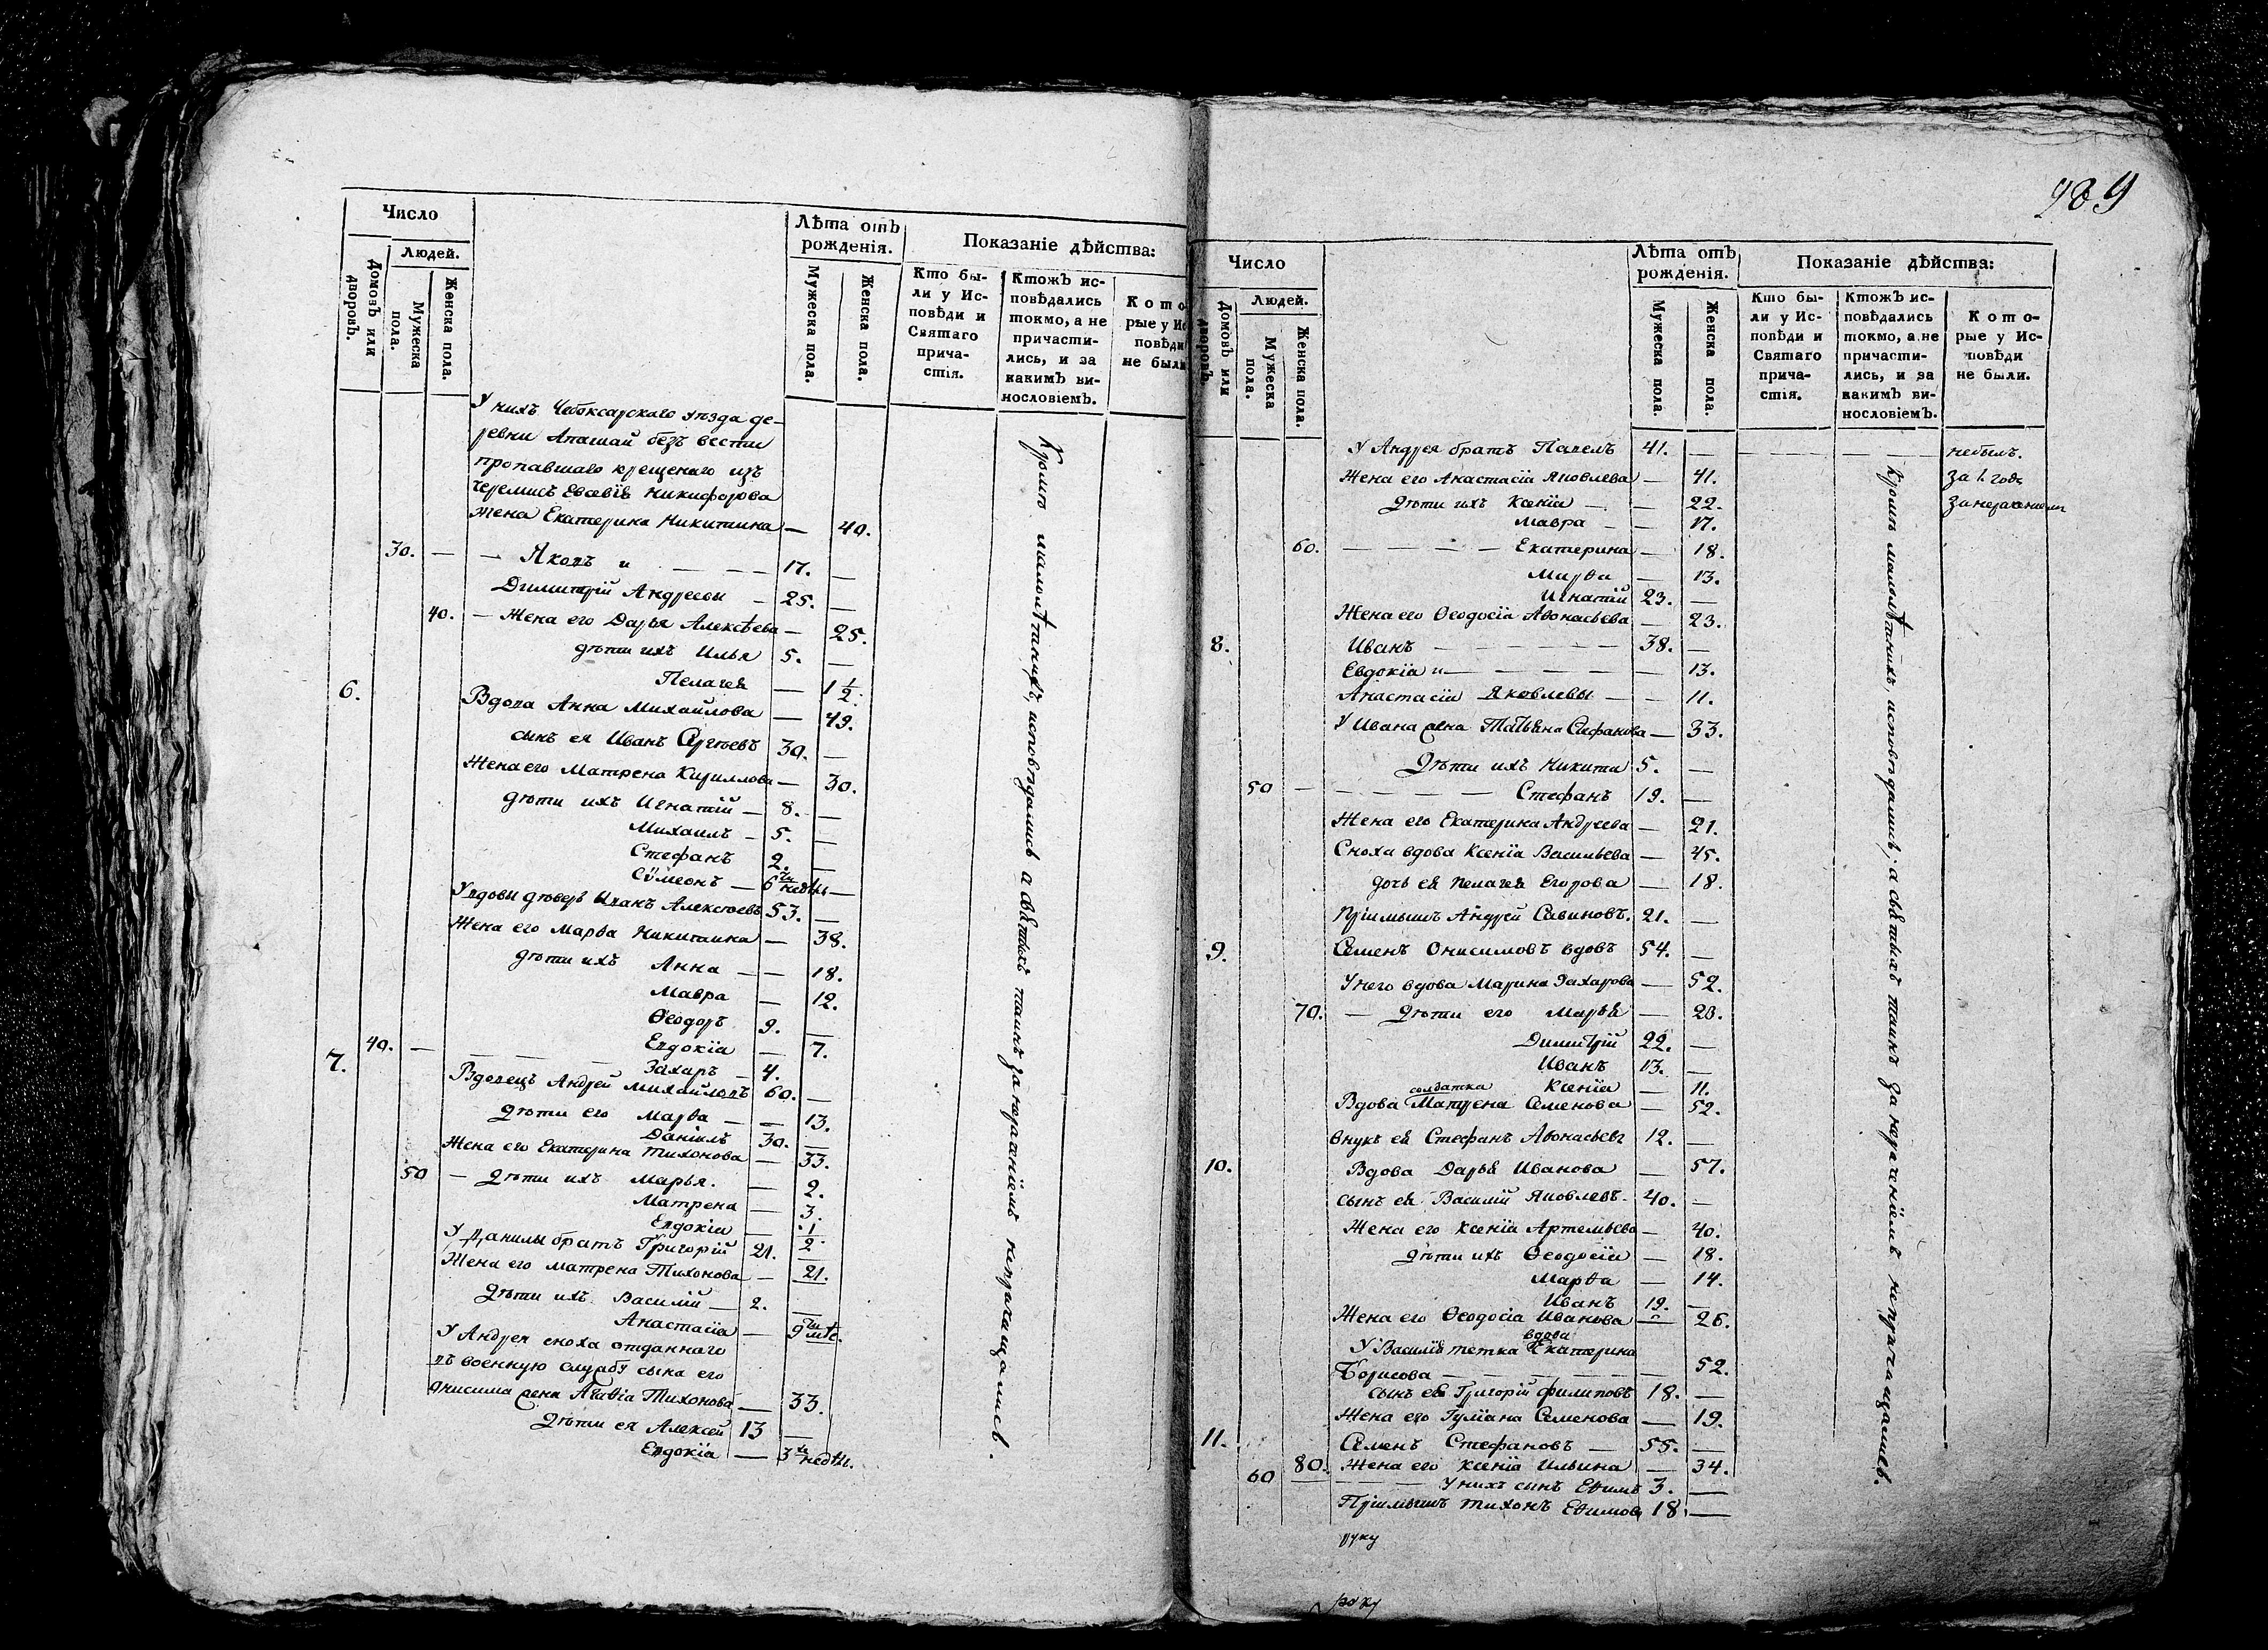 Число
Людей.
Домовъ или дворовъ.
Мужеска пола.
Женска пола.
Лѣта отъ рожденія.
Мужеска пола.
Женска пола.
Показаніе дѣйства:
Кто были у Исповѣди и Святаго причастія.
Ктожъ исповѣдались токмо, а не причастились, и за какимъ винословіемъ.
Кото
рые у Ис
повѣди
не были
У нихъ Чебоксарскаго уѣзда де-
ревни Апашай безъ вести
пропавшаго крещенаго изъ
черемисъ Евсевія Никифорова
жена Екатерина Никитина — 40.
30. — — Яковъ и — — — 17. —
Димитрій Андреевы — 25. —
40. — Жена его Дарья Алексѣева — 25.
дѣти ихъ Илья 5. —
Пелагея — 1 1/2.
6. Вдова Анна Михайлова — 49.
сынъ ея Иванъ Сергѣевъ 30. —
Жена его Матрена Кириллова — 30.
дѣти ихъ Игнатій — 8. —
Михаилъ — 5. —
Стефанъ 2. —
Сѵмеонъ — 6ти недѣль —
У вдовы дѣверь Иванъ Алексѣевъ 53. —
Жена его Марѳа Никитина — 38.
дѣти ихъ Анна — — 18.
Мавра — 12.
Ѳеодоръ 9. —
Евдокія — 7.
40. — — — — Захаръ — 4.
7. Вдовецъ Андрей Михайловъ 60. —
Дѣти его Марѳа — — 13.
Даніилъ 30. —
Жена его Екатерина Тихонова — 33.
50 — Дѣти ихъ Марья. — 2.
Матрена — 3.
Евдокіи — 1/2.
У Данилы братъ Григорій 21.
Жена его Матрена Тихонова — 21.
Дѣти ихъ Василій — 2. —
Анастасія — 9ти мѣс.
У Андрея сноха отданнаго
въ военную службу сына его
Онисима жена Агаѳія Тихонова — 33.
Дѣти ея Алексей 13 —
Евдокія — 3хъ недѣль.
Кромѣ малолѣтнихъ, исповѣдались а свѣтыхъ таинъ за нераченіемъ непричащались.
989
Число
Людей.
Домовъ или дворовъ.
Мужеска пола.
Женска пола.
Лѣта отъ рожденія.
Мужеска пола.
Женска пола.
Показаніе дѣйства:
Кто были у Исповѣди и Святаго причастія.
Ктожъ исповѣдались токмо, а не причастились, и за какимъ винословіемъ.
Которые у Исповѣди не были.
У Андрея братъ Павелъ 41. — — — — — небылъ.
Жена его Анастасіи Яковлева — 41. За 1. годъ
Дѣти ихъ Ксенія — — 22. За нераченіемъ
Мавра — — 17.
60. — — — — Екатерина — 18.
Марѳа — 13.
Игнатій 23. —
Жена его Ѳеодосія Аѳонасьева — 23.
8. Иванъ — — — — — 38. —
Евдокія и — — — — — 13.
Анастасіи Яковлевы — — 11.
У Ивана жена Татьяна Стефанова — 33.
Дѣти ихъ Никита 5. —
50 — — — — — Стефанъ 19. —
Жена его Екатерина Андреева — 21.
Сноха вдова Ксенія Васильева — 45.
дочь ея Пелагея Егорова — 18.
Пріимышъ Андрей Савиновъ. 21. —
9. Семенъ Онисимовъ вдовъ 54. —
У него вдова Марина Захарова — 52.
70. — Дѣти его Марья — 20.
Димитрій 22. —
Иванъ 13. —
Ксенія — 11.
солдатка
Вдова Матрена Семенова — 52.
внукъ ея Стефанъ Аѳонасьевъ 12. —
10. Вдова Дарья Иванова — 57.
сынъ ея Василій Яковлевъ. 40. —
Жена его Ксенія Артемьева — 40.
дѣти ихъ Ѳеодосіи — 18.
Марѳа — 14.
Иванъ 19. —
Жена его Ѳеодосія Иванова — 26.
вдова
У Василія тетка Екатерина
Борисова — — — — — 52.
сынъ ея Григорій Филиповъ 18. —
Жена его Гуліана Семенова — 19.
11. Семенъ Стефановъ — 55. —
80. Жена его Ксенія Ильина — 34.
60 — — У нихъ сынъ Еѳимъ 3. —
Пріимышъ Тихонъ Еѳимовъ 18. —
руку
Кромѣ малолѣтнихъ, исповѣдались; а свѣтыхъ таинъ за нераченіемъ непричащались.